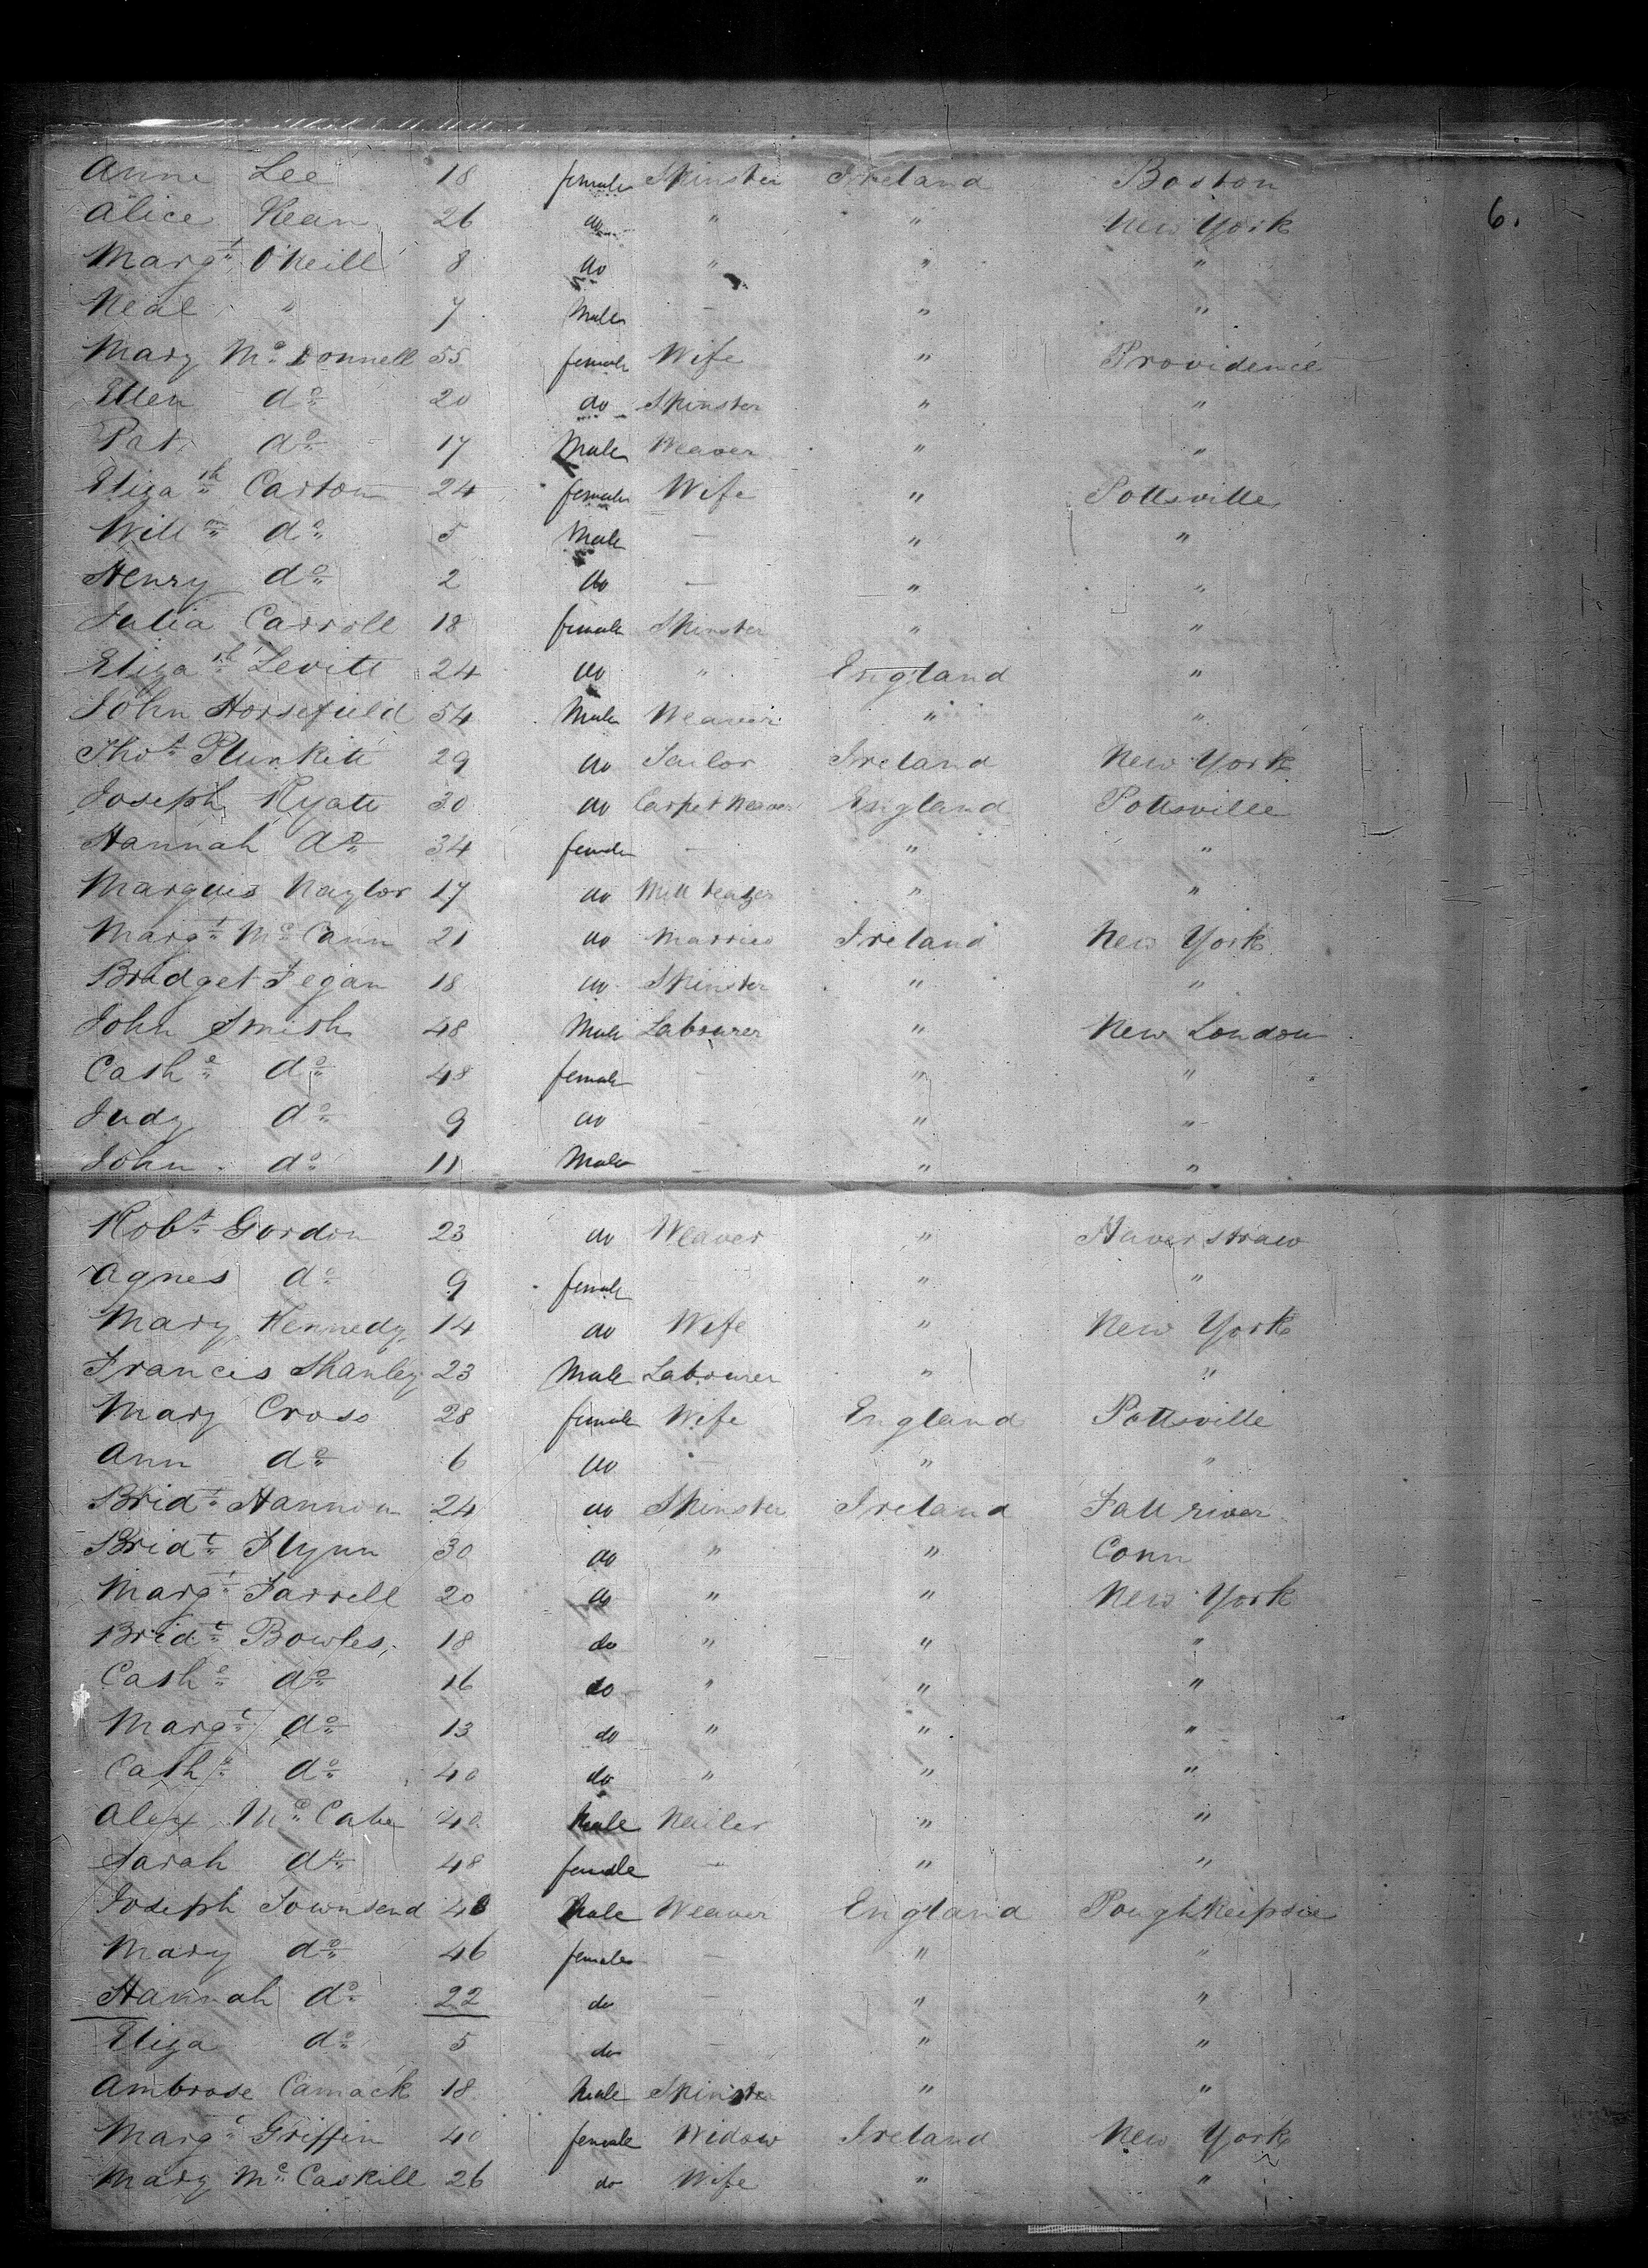 Anne Lee 18 female Spinster Ireland Boston
Alice Kean 26 do " " New York
6.
Margt O'Neill 8 do " " "
Neal " 7 Male — " "
Mary McDonnell 55 female Wife " Providence
Ellen do 20 do Spinster " "
Pat do 17 Male Weaver " "
Elizath Carton 24 female Wife " Pottsville
Willm do 5 Male — " "
Henry do 2 do — " "
Julia Carroll 18 female Spinster " "
Elizath Levitt 24 do " England "
John Horsefield 54 Male Weaver " "
Thos Plunkett 29 do Tailor Ireland New York
Joseph Hyatt 30 do Carpet Weaver England Pottsville
Hannah do 34 female — " "
Marquis Naylor 17 do Mill " "
Margt McCann 21 do Married Ireland New York
Bridget Fegan 18 do Spinster " "
John Smith 48 Male Labourer " New London
Cathe do 48 female - " "
Judy do 9 do - " "
John do 11 Male - " "
Robt Gordon 23 do Weaver " Haverstraw
Agnes do 9 female - " "
Mary Kennedy 14 do Wife " New York
Francis Shanley 23 Male Labourer " "
Mary Cross 28 female Wife England Pottsville
Ann do 6 do " "
Bridt Hannon 24 do Spinster Ireland Fall river
Bridt Flynn 30 do " " Conn
Margt Farrell 20 do " " New York
Bridt Bowles 18 do " " "
Cathe do 16 do " " "
Margt do 13 do " " "
Cathe do 40 do " " "
Alex McCabe 40 Male Nailer " "
Sarah do 48 female — " "
Joseph Townsend 48 Male Weaver England Poughkeipsie
Mary do 46 female — " "
Hannah do 22 do — " "
Eliza do 5 do — " "
Ambrose Camack 18 Male Spinster " "
Margt Griffin 40 female Widow Ireland New York
Mary McCaskill 26 do Wife " "